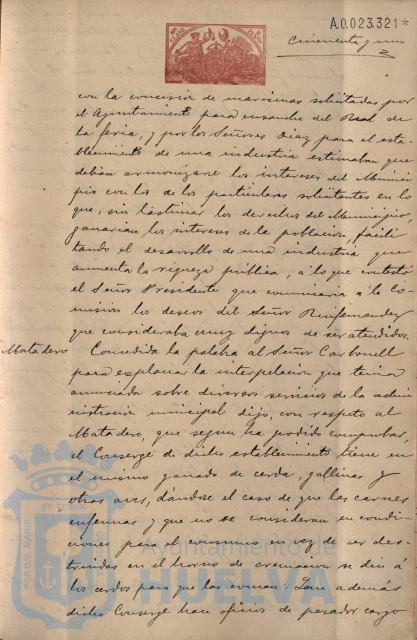 A.0.023.321*
Cincuenta y uno
con la concesion de marismas solicitadas por
el Ayuntamiento para ensanche del Real de
la feria, y por los Señores Diaz para el esta-
blecimiento de una industria estimaban que
debian armonizarse los intereses del Munici-
pio con los de los particulares solicitantes en lo
que, sin lastimar los derechos del Municipio,
ganarian los intereses de la poblacion, facili-
tando el desarrollo de una industria que
aumenta la riqueza pública, á lo que contestó
el Señor Presidente que comunicaria á la Co-
mision los deseos del Señor
que consideraba muy dignos de ser atendidos.
Matadero
Concedida la palabra al Señor Carbonell
para explanar la interpelacion que tenia
anunciada sobre diversos servicios de la admi-
nistracion municipal dijo, con respeto al
Matadero, que segun ha podido comprobar,
el Conserge de dicho establecimiento tiene en
el mismo ganado de cerda, gallinas y
otras aves, dándose el caso de que las carnes
enfermas y que no se consideran en condi-
ciones para el consumo en vez de ser des-
truidas en el horno de cremacion se den á
los cerdos para que las coman: Que además
dicho Conserge hace oficios de pesador cargo
PORTUS MARIS ET TERRAE
Ayuntamiento de
HUELVA